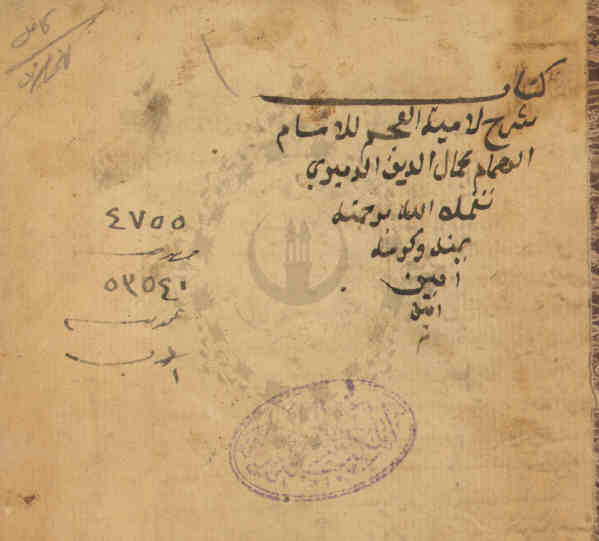 كامل
كتاب
شرح لامية العجم للامام
الهمام كمال الدين الدميري
تغمده الله برحمته
بمنه وكرمه
امين
امين
م
٤٧٥٥
٥٣٥٤٠